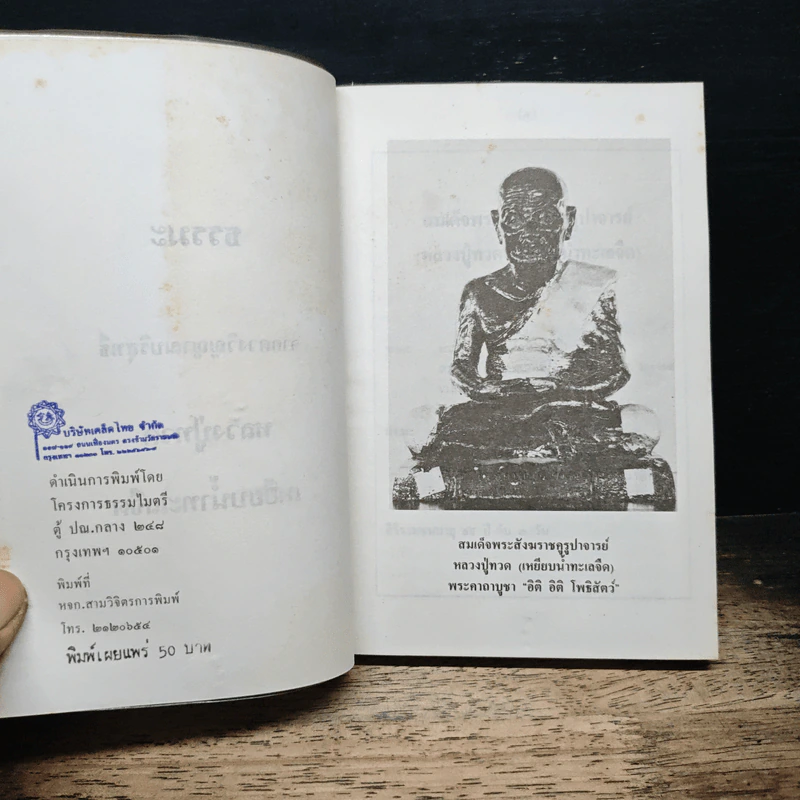 บริษัทเคล็ดไทย จำกัด
กรุงเทพฯ ๑๐๒๐๐ โทร.
ดำเนินการพิมพ์โดย
โครงการธรรมไมตรี
ตู้ ปณ.กลาง ๒๔๘
กรุงเทพฯ ๑๐๕๐๑
พิมพ์ที่
หจก.สามวิจิตรการพิมพ์
โทร. ๒๑๒๐๖๕๔
พิมพ์เผยแพร่ 50 บาท
สมเด็จพระสังฆราชคูรูปาจารย์
หลวงปู่ทวด (เหยียบน้ำทะเลจืด)
พระคาถาบูชา "อิติ อิติ โพธิสัตว์"